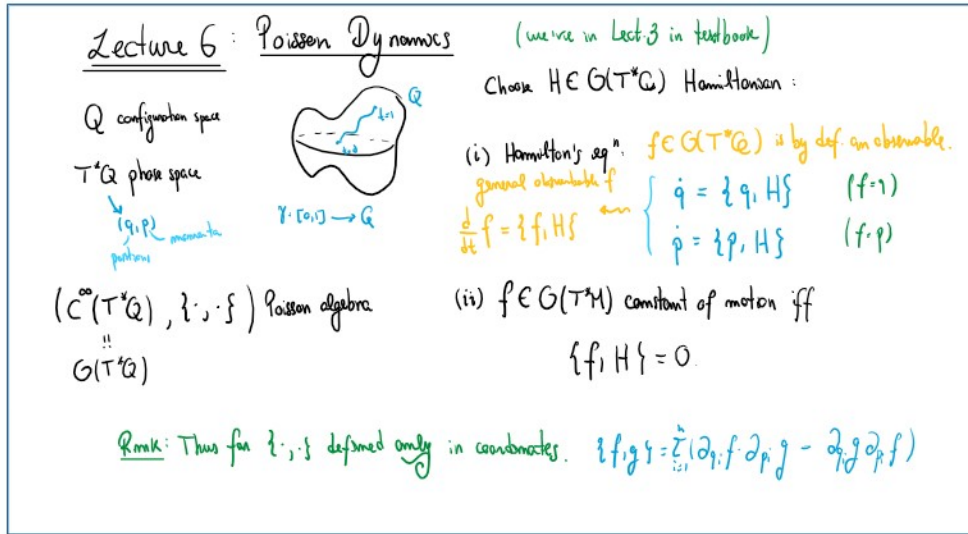 Lecture 6: Poisson Dynamics
(we're in Lect.3 in textbook)
Q configuration space
T*Q phase space
(q,p) momenta
positions
Q
t=1
t=0
γ: [0,1] → Q
(C^∞(T*Q), {·,·}) Poisson algebra
!!
O(T*Q)
Choose H ∈ O(T*Q) Hamiltonian:
(i) Hamilton's eqⁿ. f ∈ O(T*Q) is by def. an observable.
general observable f
d/dt f = {f, H}
q̇ = {q, H} (f=q)
ṗ = {p, H} (f=p)
(ii) f ∈ O(T*M) constant of motion iff
{f, H} = 0.
Rmk: Thus far {·,·} defined only in coordinates. {f,g} = Σ_{i=1}^n (∂_{q_i} f · ∂_{p_i} g − ∂_{q_i} g ∂_{p_i} f)